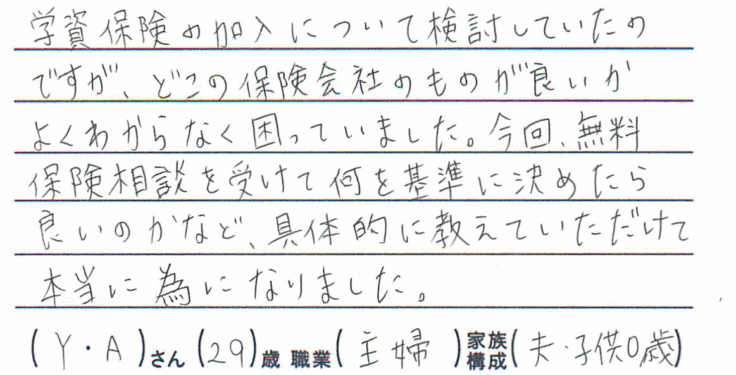 学資保険の加入について検討していたの
ですが、どこの保険会社のものが良いか
よくわからなく困っていました。今回、無料
保険相談を受けて何を基準に決めたら
良いのかなど、具体的に教えていただけて
本当に為になりました。
(Y・A)さん(29)歳 職業(主婦)家族構成(夫・子供0歳)